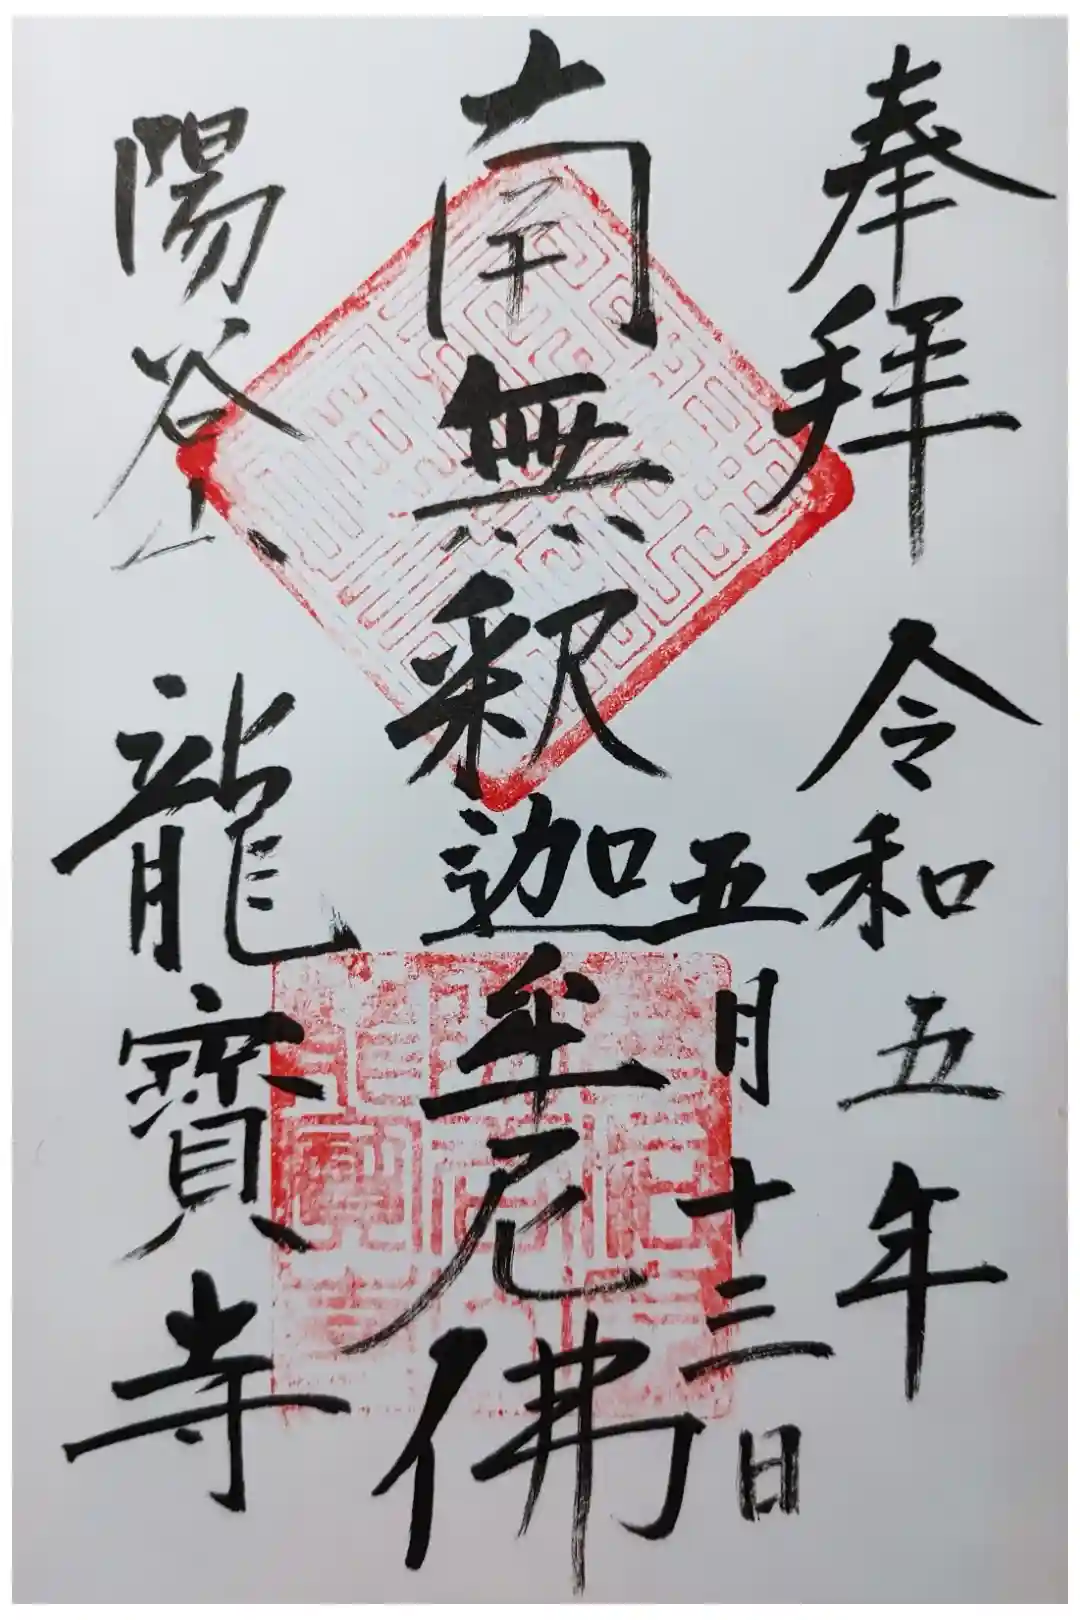 奉拜 令和五年
五月十三日
南無釈迦牟尼佛
陽谷山 龍寶寺